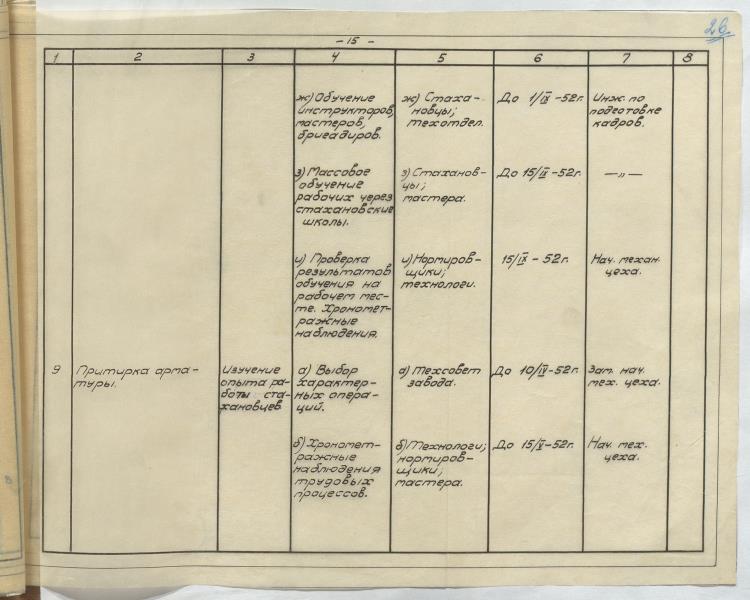 26
- 15 -
1 2 3 4 5 6 7 8
ж) Обучение
инструкторов,
мастеров,
бригадиров.
ж) Стаха-
новцы;
техотдел.
До 1/IX -52г.
Инж. по
подготовке
кадров.
з) Массовое
обучение
рабочих через
стахановские
школы.
з) Стаханов-
цы;
мастера.
До 15/IX -52г.
— „ —
и) Проверка
результатов
обучения на
рабочем мес-
те. Хрономет-
ражные
наблюдения.
и) Нормиров-
щики;
технологи.
15/IX - 52г.
Нач. механ.
цеха.
9
Притирка арма-
туры.
Изучение
опыта ра-
боты ста-
хановцев
а) Выбор
характер-
ных опера-
ций.
а) Техсовет
завода.
До 10/IV -52г.
Зам. нач.
мех. цеха.
б) Хрономет-
ражные
наблюдения
трудовых
процессов.
б) Технологи;
нормиров-
щики;
мастера.
До 15/V -52г.
Нач. мех.
цеха.